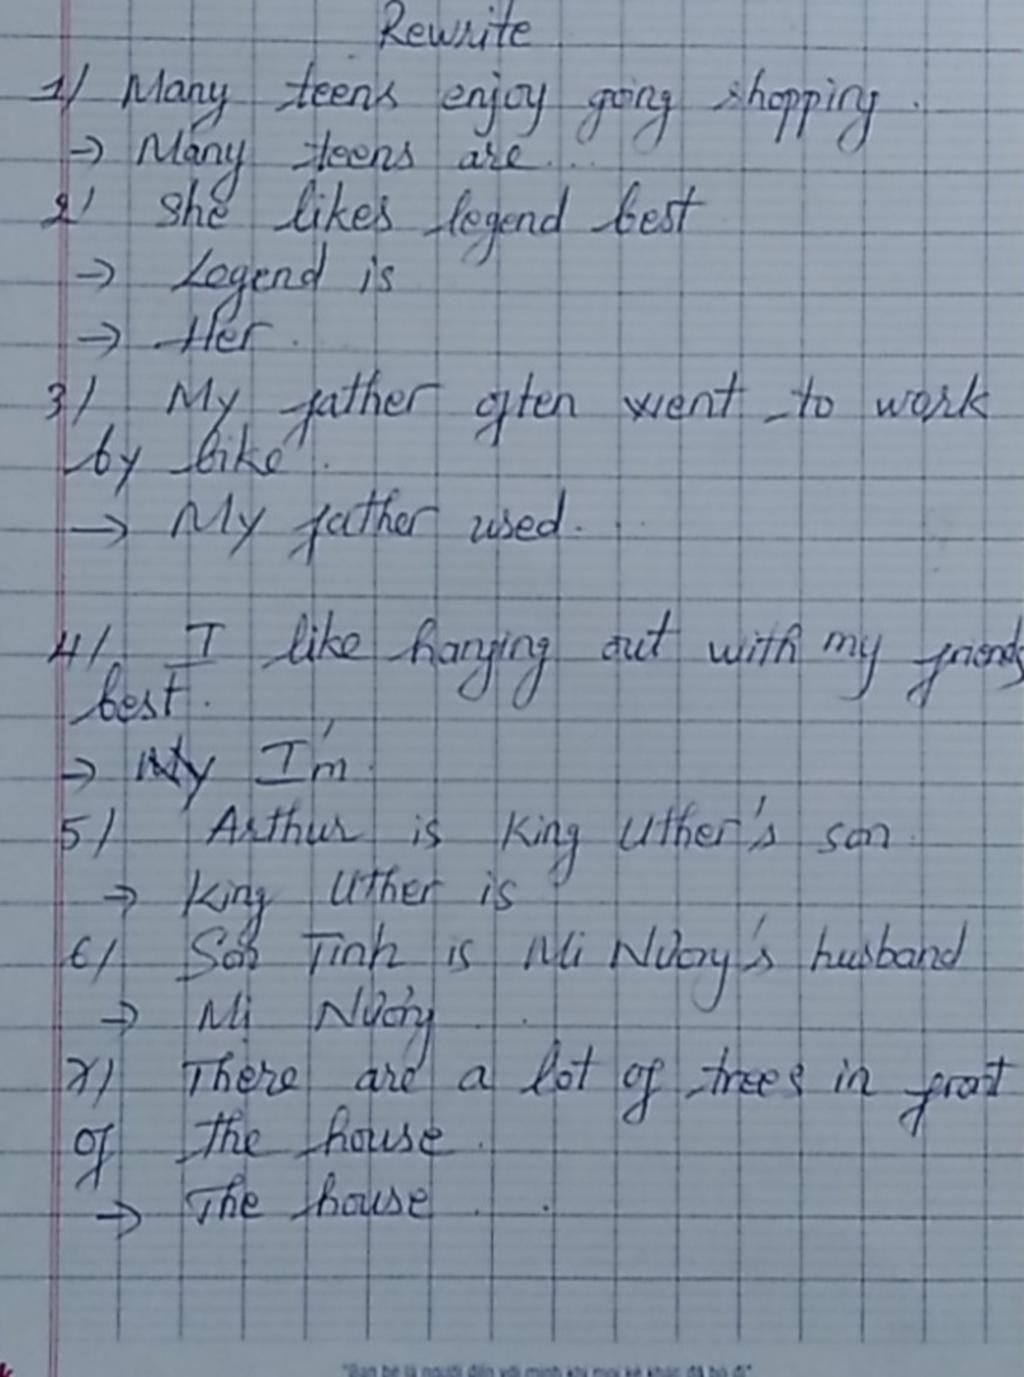 Rewrite
1/ Many teens enjoy going shopping.
→ Many teens are...
2/ she likes legend best
→ Legend is
→ Her.
3/ My father often went to work
by bike.
→ My father used.
4/ I like hanging out with my friends
best.
→ My I'm.
5/ Arthur is King Uther's son.
→ King Uther is
6/ Sơn Tinh is Mi Nương's husband
→ Mị Nương
7/ There are a lot of trees in front
of the house.
→ The house..
"Bạn bè là người đến với mình khi mọi kẻ khác đã bỏ đi"